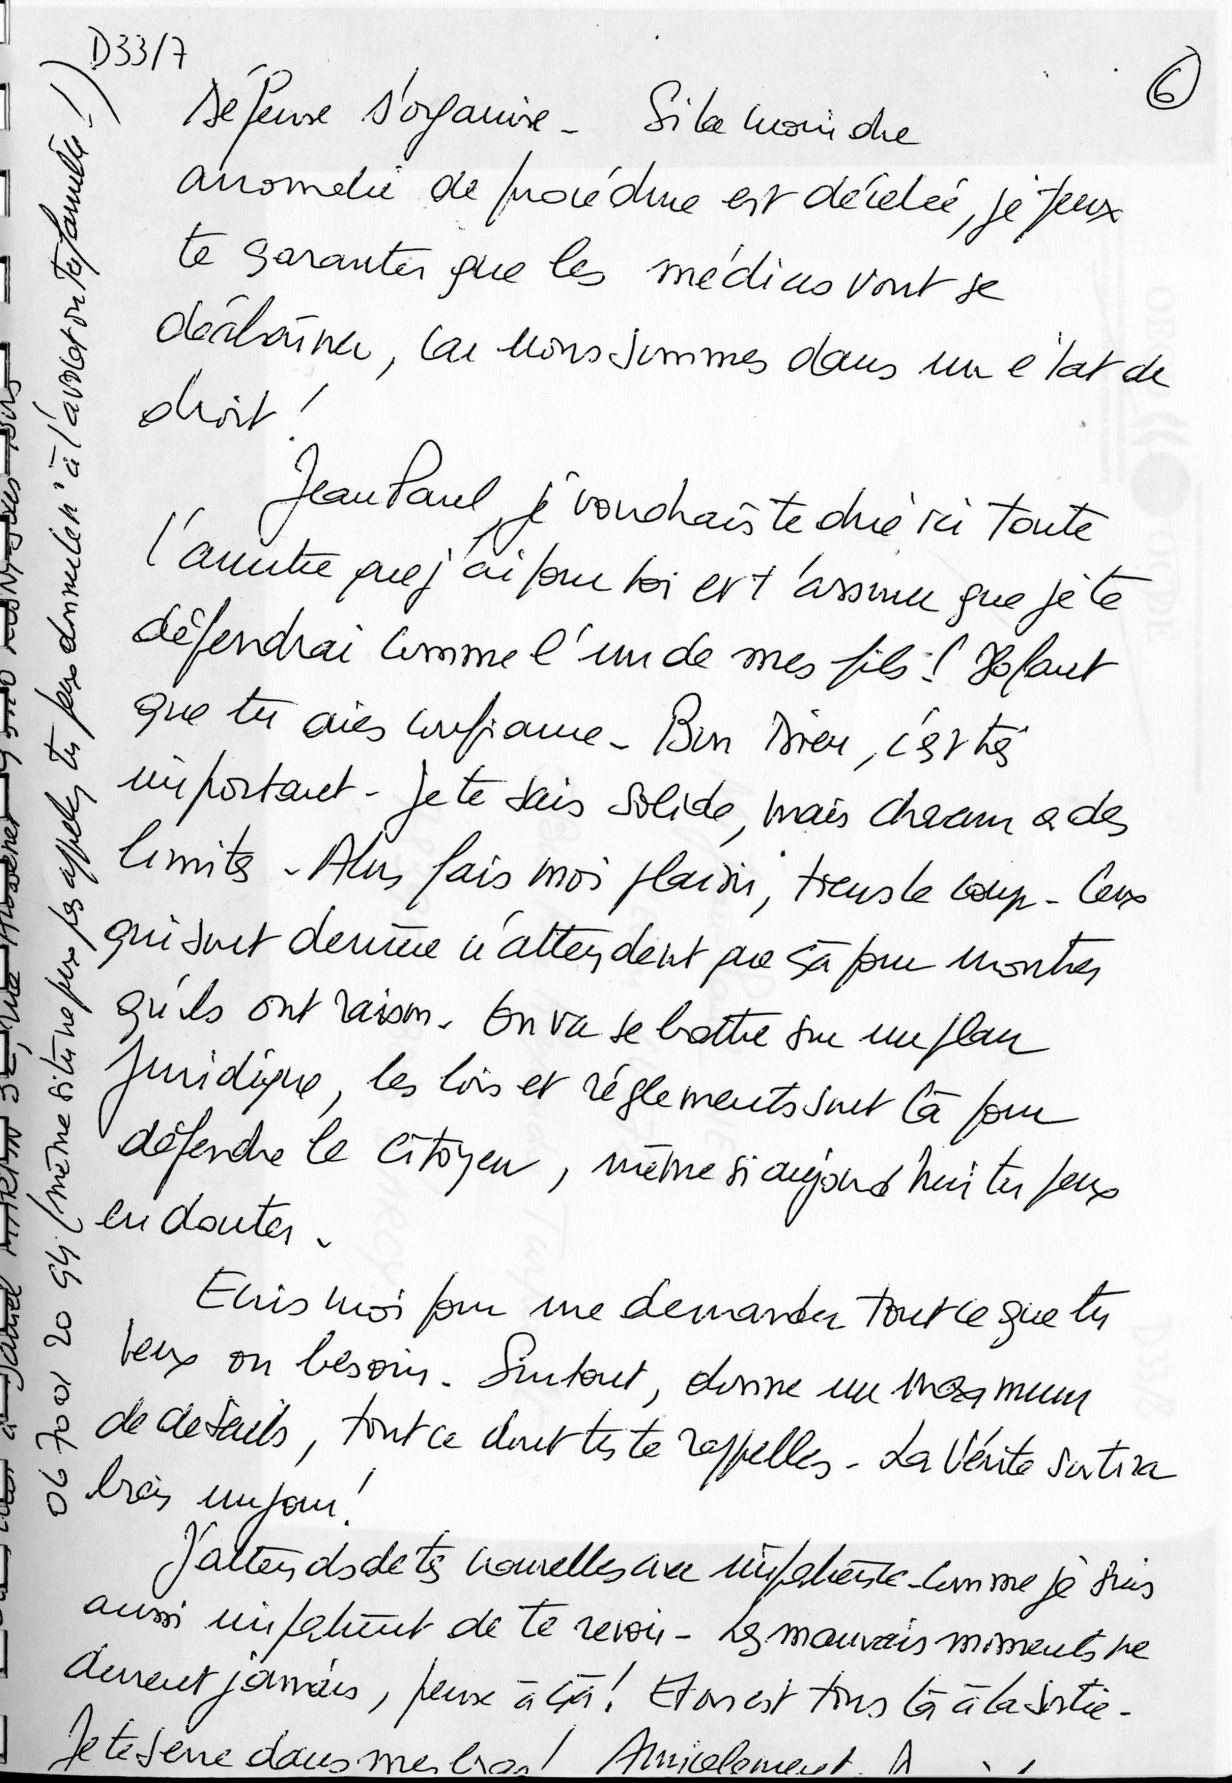 D33/7
6
Défense s'organise - Si la moindre
anomalie de procédure est décelée, je peux
te garantir que les médias vont se
déchaîner, car nous sommes dans un état de
droit !
Jean Paul, je voudrais te dire ici toute
l'amitié que j'ai pour toi et t'assurer que je te
défendrai comme l'un de mes fils ! Il faut
que tu aies confiance - Bon Dieu, c'est très
important - Je te sais solide, mais chacun a des
limites - Alors fais moi plaisir, tiens le coup - Ceux
qui sont derrière n'attendent que çà pour montrer
qu'ils ont raison. On va se battre sur un plan
Juridique, les lois et réglements sont là pour
défendre le Citoyen, même si aujourd'hui tu peux
en douter.
Ecris moi pour me demander tout ce que tu
veux ou besoin. Surtout, donne un maximum
de détails, tout ce dont tu te rappelles - La Vérité sortira
bien un jour !
J'attends de tes nouvelles avec impatience - Comme je suis
aussi impatient de te revoir - Les mauvais moments ne
durent jamais, pense à çà ! Et on est tous là à la sortie -
Je te serre dans mes bras ! Amicalement.
06 70 01 20 94 (même si tu ne peux pas appeler, tu peux dire à l'avocat ou ta famille !)
MARTIN
OECD OCDE
D33/8